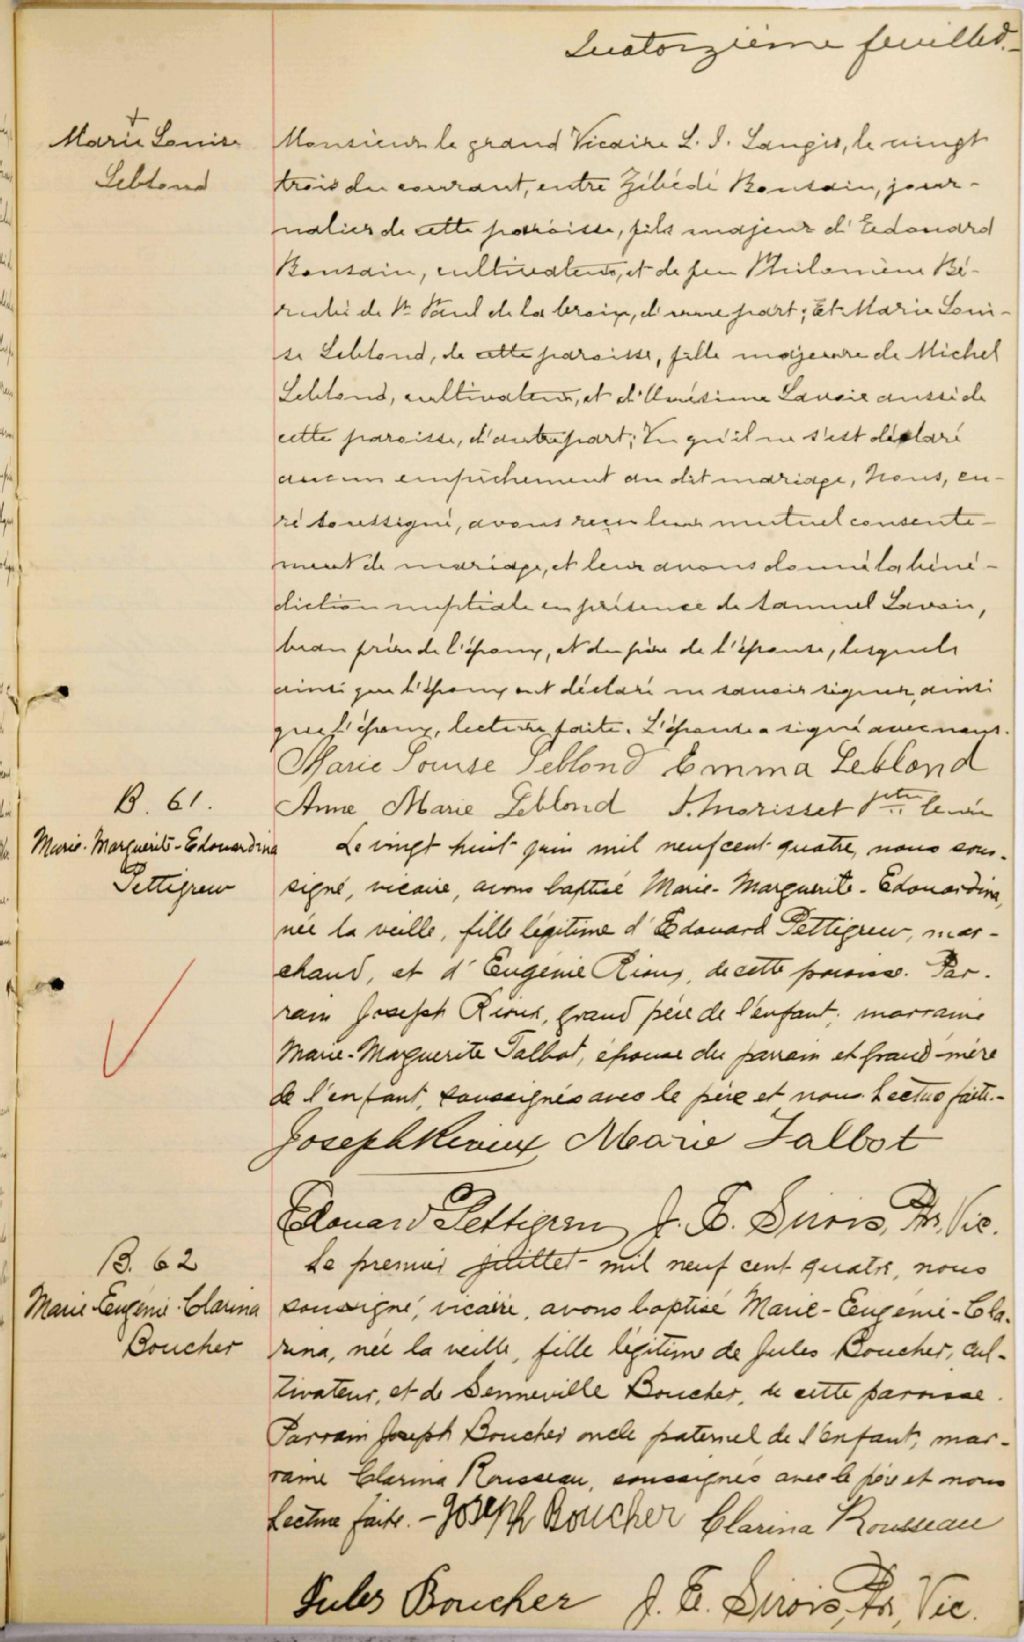 Quatorzième feuillet.
+
Marie Louise
Leblond
Monsieur le grand Vicaire L. J. Langis, le vingt
trois du courant, entre Zébédé Bousain, jour-
nalier de cette paroisse, fils majeur d'Edouard
Bousain, cultivateur, et de feu Philomène Bé-
rubé de St Paul de la Croix, d'une part; Et Marie Loui-
se Leblond, de cette paroisse, fille majeure de Michel
Leblond, cultivateur, et d'Onésime Lavoie aussi de
cette paroisse, d'autre part; Vu qu'il ne s'est déclaré
aucun empêchement au dit mariage, Nous, cu-
ré soussigné, avons reçu leur mutuel consente-
ment de mariage, et leur avons donné la béné-
diction nuptiale en présence de Samuel Lavoie,
beau frère de l'époux, et du père de l'épouse, lesquels
ainsi que l'époux ont déclaré ne savoir signer, ainsi
que l'époux, lecture faite. L'épouse a signé avec nous.
Marie Louise Leblond Emma Leblond
Anne Marie Leblond J. Morisset ptre curé
B. 61.
Marie-Marguerite-Edouardina
Pettigrew
Le vingt huit juin mil neuf cent quatre, nous sous-
signé, vicaire, avons baptisé Marie-Marguerite-Edouardina,
née la veille, fille légitime d'Edouard Pettigrew, mar-
chand, et d'Eugénie Rioux, de cette paroisse. Par-
rain Joseph Rioux, grand père de l'enfant, marraine
Marie-Marguerite Talbot, épouse du parrain et grand-mère
de l'enfant, soussignés avec le père et nous. Lecture faite.-
Joseph Rioux Marie Talbot
Edouard Pettigrew J. E. Sirois, Ptr, Vic.
B. 62
Marie-Eugénie-Clarina
Boucher
Le premier juillet mil neuf cent quatre, nous
soussigné, vicaire, avons baptisé Marie-Eugénie-Cla-
rina, née la veille, fille légitime de Jules Boucher, cul-
tivateur, et de Senneville Boucher, de cette paroisse.
Parrain Joseph Boucher oncle paternel de l'enfant, mar-
raine Clarina Rousseau, soussignés avec le père et nous
Lecture faite. - Joseph Boucher Clarina Rousseau
Jules Boucher J. E. Sirois, Ptr, Vic.